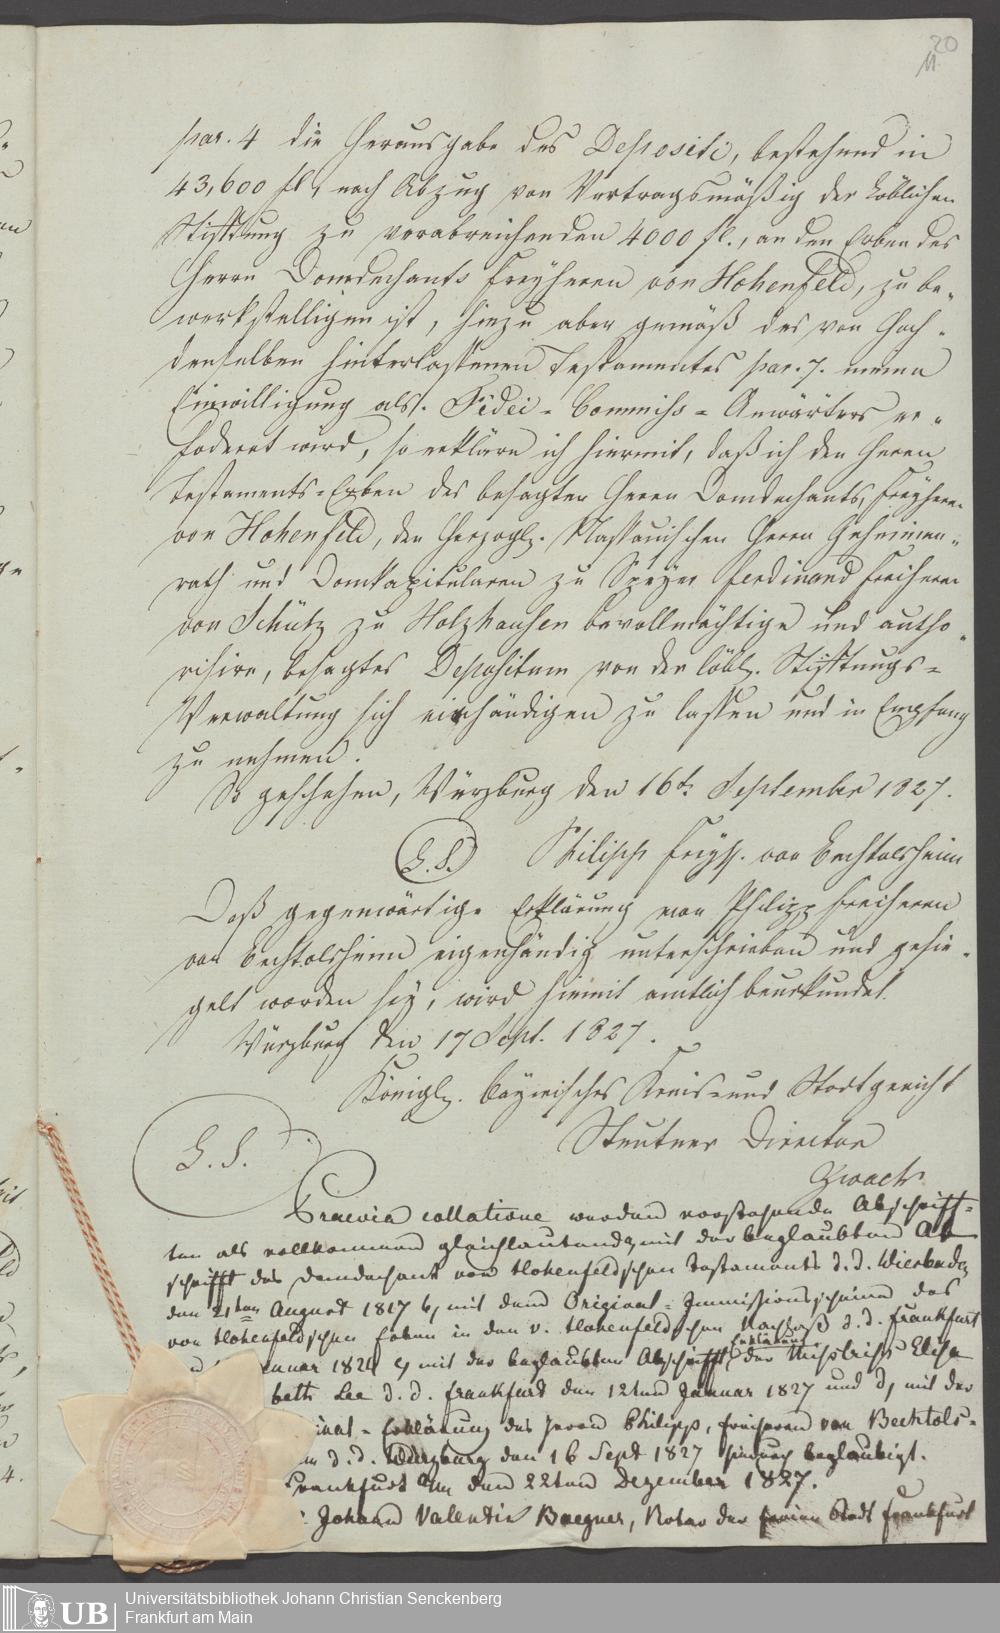 20
11
par. 4 die Herausgabe des Depositi, bestehend in
43,600 fl, nach Abzug von Vertragsmäßig der Löblichen
Stifftung zu verabreichenden 4000 fl., an den Erben des
Herrn Domdechants Freyherrn von Hohenfeld, zu be-
werkstelligen ist, hiezu aber gemäß des von Hoch-
denselben hinterlassenen Testamentes par. 7. meine
Einwilligung als Fidei-Commiss-Anwärters er-
foderet wird, so erkläre ich hiermit, daß ich den Herrn
Testaments-Erben des besagten Herrn Domdechants, Freyherrn
von Hohenfeld, den Herzogl. Nassauischen Herrn Geheimen-
rath und Domkapitularen zu Speyer Ferdinand Freiherrn
von Schütz zu Holzhausen bevollmächtige und autho-
risire, besagtes Depositum von der löbl. Stifftungs-
Verwaltung sich einhändigen zu lassen und in Empfang
zu nehmen.
So geschehen, Würzburg den 16t. September 1827.
L. S. Philipp Freyh. von Bechtolsheim
Daß gegenwärtige Erklärung von Philipp Freiherrn
von Bechtolsheim eigenhändig unterschrieben und gesie-
gelt worden sey, wird hiemit amtlich beurkundet.
Würzburg den 17 Sept. 1827.
Königl. Bayrisches Kreis- und Stadtgericht
L. S.
Director
Praevia collatione werden vorstehende Abschrif-
ten als vollkommen gleichlautend a, mit der beglaubten Ab
schrifft des Domdechant von Hohenfeldschen Testaments d. d. Wiesbaden
den 21ten August 1817 b, mit dem Original-Immissionsscheine des
von Hohenfeldschen Erben in den v. Hohenfeldschen Nachlaß d. d. Frankfurt
nuar 1824 c, mit der beglaubten Abschrifft der Erklärung der Misstriss Elisa
beth Lee d. d. Frankfurt den 12ten Januar 1827 und d, mit der
inal-Erklärung des Herrn Philipp, Freiherrn von Bechtols-
m d. d. Würzburg den 16 Sept 1827 hiedurch beglaubigt.
Frankfurt a/m den 22ten Dezember 1827.
Johann Valentin Buegner, Notar der freien Stadt Frankfurt
UB
Universitätsbibliothek Johann Christian Senckenberg
Frankfurt am Main